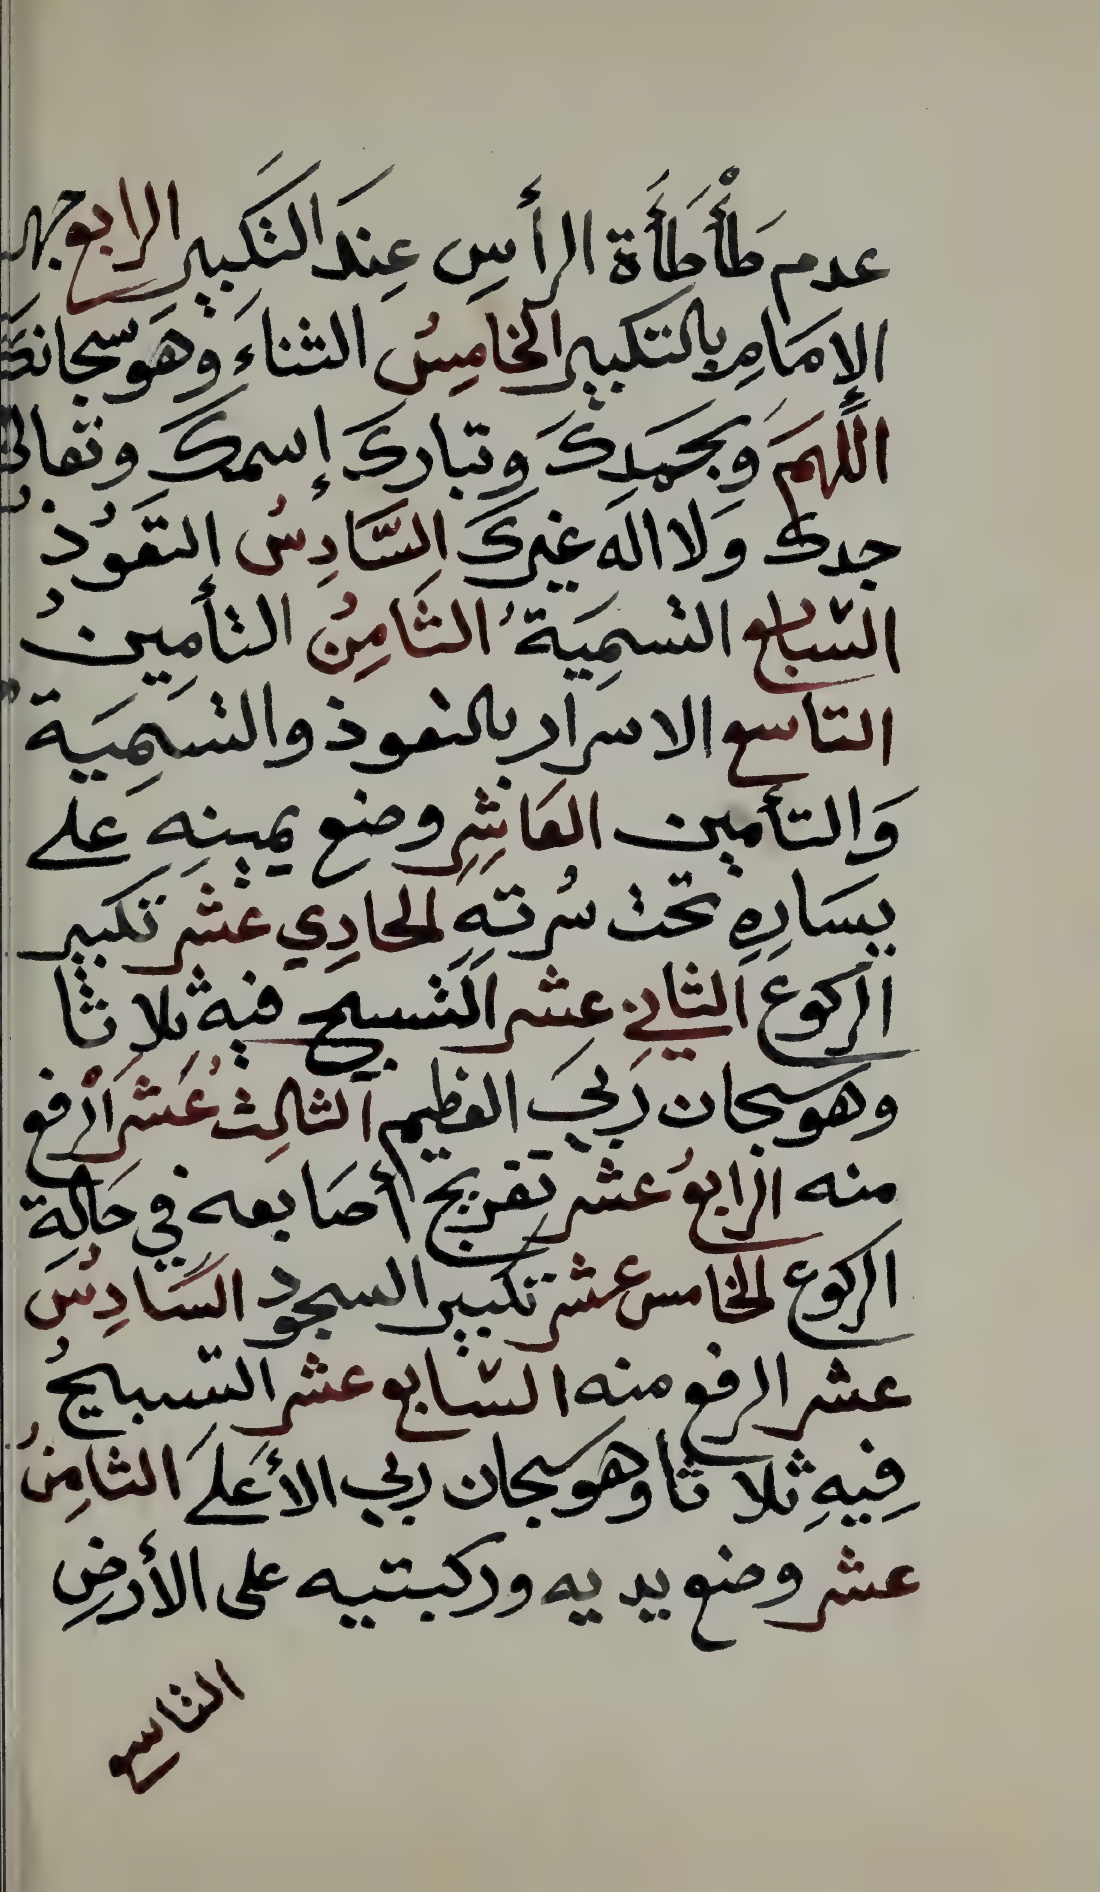 عدم طَأْطَأَة الرأَسِ عِندَ التَكبير الرابع جهر
الإمَامِ بالتكبير الخامِسُ الثناءَ وَهوَ سبحانكَ
اللَّهمَ وَبحمَدِكَ وتباركَ إسمكَ وتعالى
جدك وَلا اله غيركَ السَّادِسُ التعَوُذ
السابع التسمِيَةُ الثَامِنُ التأمِينُ
التاسع الاسرار بالتعوذ والتسمِيَة
وَالتأمين العَاشِرِ وضع يمينِهِ على
يسَارِهِ تحت سُرتهِ الحادِي عشر تكبير
الركوع الثاني عشر التسبيح فيه ثلاثا
وهو سبحان ربيَ العظيم الثالث عشَر الرفع
منه الرابعُ عشر تفريج أصَابعه في حَالَة
الركوع الخامس عشر تكبير السجود السَادِسُ
عشر الرفع منه السابع عشر التسبيحُ
فِيهِ ثلاثا وهو سبحان ربي الأعَلىَ الثامِنُ
عشر وضع يديه وركبتيه على الأرضِ
التاسع